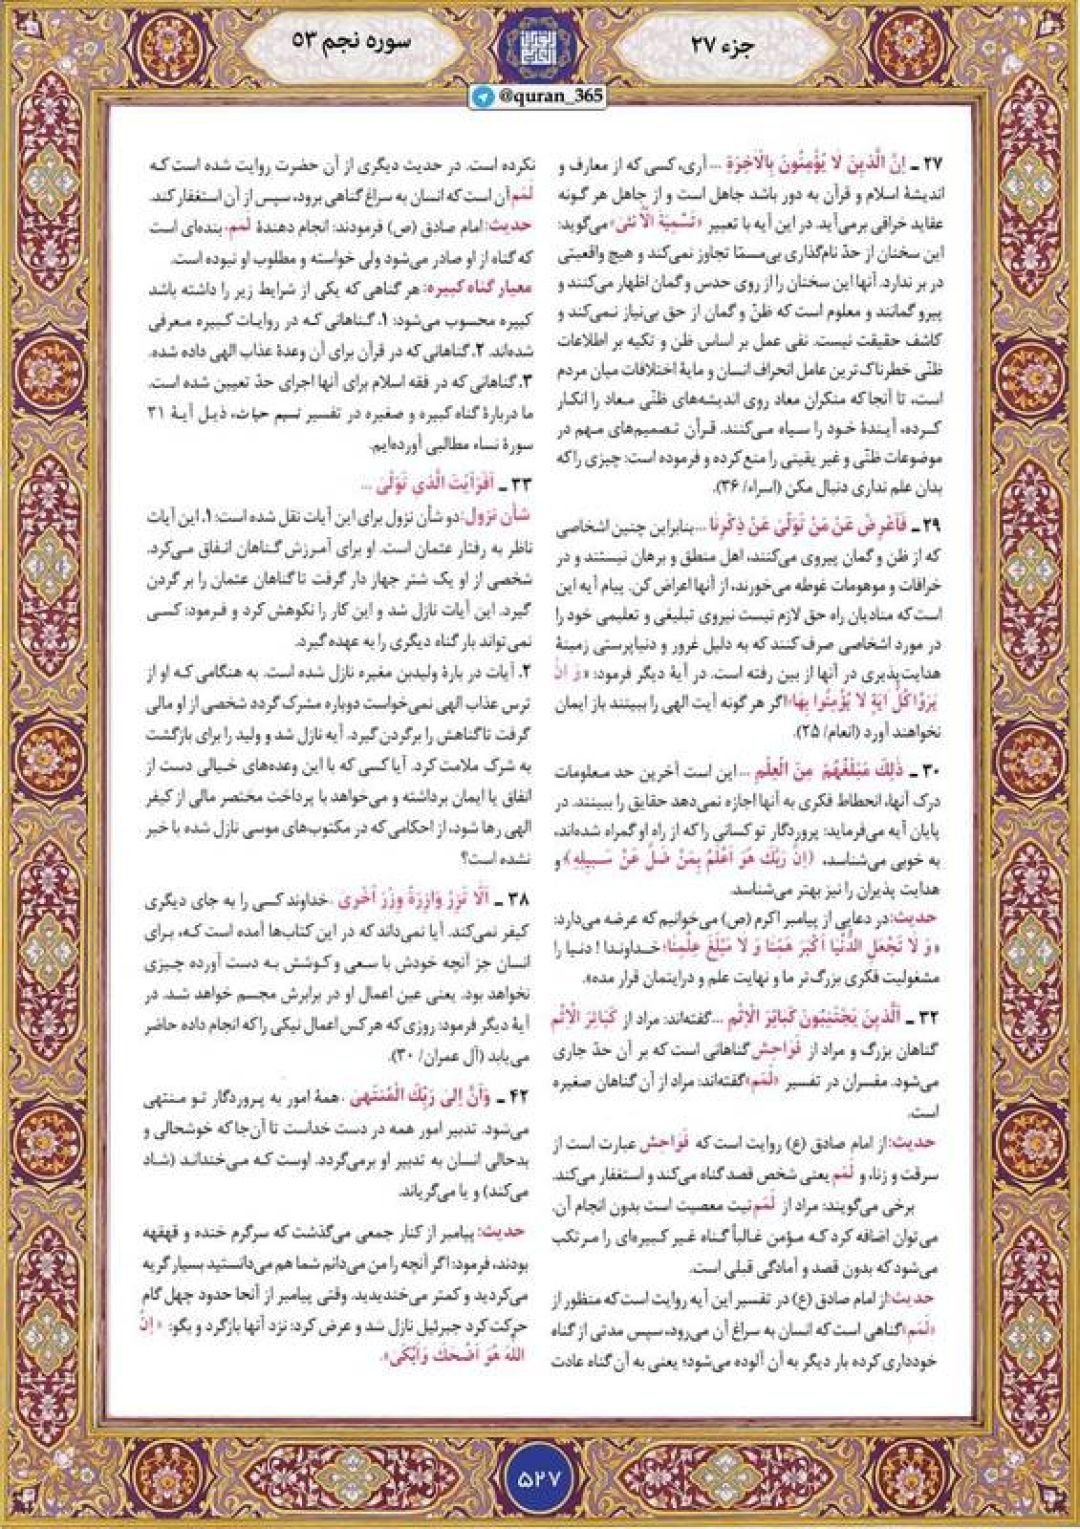 جزء ۲۷
سوره نجم ۵۳
@quran_365
۲۷ ـ اِنَّ الَّذینَ لا یُؤْمِنُونَ بِالْآخِرَةِ ... آری، کسی که از معارف و
اندیشهٔ اسلام و قرآن به دور باشد جاهل است و از جاهل هر گونه
عقاید خرافی برمی‌آید. در این آیه با تعبیر «تَسْمِیَةَ الْاُنْثی» می‌گوید:
این سخنان از حدّ نام‌گذاری بی‌مسمّا تجاوز نمی‌کند و هیچ واقعیتی
در بر ندارد. آنها این سخنان را از روی حدس و گمان اظهار می‌کنند و
پیرو گمانند و معلوم است که ظنّ و گمان از حق بی‌نیاز نمی‌کند و
کاشف حقیقت نیست. نفی عمل بر اساس ظن و تکیه بر اطلاعات
ظنّی خطرناک‌ترین عامل انحراف انسان و مایهٔ اختلافات میان مردم
است، تا آنجا که منکران معاد روی اندیشه‌های ظنّی معاد را انکار
کرده، آیندهٔ خود را سیاه می‌کنند. قرآن تصمیم‌های مهم در
موضوعات ظنّی و غیر یقینی را منع کرده و فرموده است: چیزی را که
بدان علم نداری دنبال مکن (اسراء/ ۳۶).
۲۹ ـ فَاَعْرِضْ عَنْ مَنْ تَوَلّی عَنْ ذِکْرِنا ... بنابراین چنین اشخاصی
که از ظن و گمان پیروی می‌کنند، اهل منطق و برهان نیستند و در
خرافات و موهومات غوطه می‌خورند، از آنها اعراض کن. پیام آیه این
است که منادیان راه حق لازم نیست نیروی تبلیغی و تعلیمی خود را
در مورد اشخاصی صرف کنند که به دلیل غرور و دنیاپرستی زمینهٔ
هدایت‌پذیری در آنها از بین رفته است. در آیهٔ دیگر فرمود: «وَ اِنْ
یَرَوْا کُلَّ آیَةٍ لا یُؤْمِنُوا بِها» اگر هر گونه آیت الهی را ببینند باز ایمان
نخواهند آورد (انعام/ ۲۵).
۳۰ ـ ذٰلِكَ مَبْلَغُهُمْ مِنَ الْعِلْمِ ... این است آخرین حد معلومات
درک آنها، انحطاط فکری به آنها اجازه نمی‌دهد حقایق را ببینند. در
پایان آیه می‌فرماید: پروردگار تو کسانی را که از راه او گمراه شده‌اند،
به خوبی می‌شناسد، (اِنَّ رَبَّكَ هُوَ اَعْلَمُ بِمَنْ ضَلَّ عَنْ سَبیلِهِ) و
هدایت پذیران را نیز بهتر می‌شناسد.
حدیث: در دعایی از پیامبر اکرم (ص) می‌خوانیم که عرضه می‌دارد:
«وَ لا تَجْعَلِ الدُّنْیا اَکْبَرَ هَمِّنا وَ لا مَبْلَغَ عِلْمِنا» خداوندا! دنیا را
مشغولیت فکری بزرگ‌تر ما و نهایت علم و درایتمان قرار مده».
۳۲ ـ اَلَّذینَ یَجْتَنِبُونَ کَبائِرَ الْاِثْمِ ... گفته‌اند: مراد از کَبائِرَ الْاِثْمِ
گناهان بزرگ و مراد از فَواحِش گناهانی است که بر آن حدّ جاری
می‌شود. مفسران در تفسیر «لَمَم» گفته‌اند: مراد از آن گناهان صغیره
است.
حدیث: از امام صادق (ع) روایت است که فَواحِش عبارت است از
سرقت و زنا، و لَمَم یعنی شخص قصد گناه می‌کند و استغفار می‌کند.
برخی می‌گویند: مراد از لَمَم نیت معصیت است بدون انجام آن.
می‌توان اضافه کرد که مؤمن غالباً گناه غیر کبیره‌ای را مرتکب
می‌شود که بدون قصد و آمادگی قبلی است.
حدیث: از امام صادق (ع) در تفسیر این آیه روایت است که منظور از
«لَمَم» گناهی است که انسان به سراغ آن می‌رود، سپس مدتی از گناه
خودداری کرده بار دیگر به آن آلوده می‌شود؛ یعنی به آن گناه عادت
نکرده است. در حدیث دیگری از آن حضرت روایت شده است که
لَمَم آن است که انسان به سراغ گناهی برود، سپس از آن استغفار کند.
حدیث: امام صادق (ص) فرمودند: انجام دهندهٔ لَمَم، بنده‌ای است
که گناه از او صادر می‌شود ولی خواسته و مطلوب او نبوده است.
معیار گناه کبیره: هر گناهی که یکی از شرایط زیر را داشته باشد
کبیره محسوب می‌شود: ۱. گناهانی که در روایات کبیره معرفی
شده‌اند. ۲. گناهانی که در قرآن برای آن وعدهٔ عذاب الهی داده شده.
۳. گناهانی که در فقه اسلام برای آنها اجرای حدّ تعیین شده است.
ما دربارهٔ گناه کبیره و صغیره در تفسیر نسیم حیات، ذیل آیهٔ ۳۱
سورهٔ نساء مطالبی آورده‌ایم.
۳۳ ـ اَفَرَاَیْتَ الَّذی تَوَلّی ...
شأن نزول: دو شأن نزول برای این آیات نقل شده است: ۱. این آیات
ناظر به رفتار عثمان است. او برای آمرزش گناهان انفاق می‌کرد.
شخصی از او یک شتر جهاز دار گرفت تا گناهان عثمان را بر گردن
گیرد. این آیات نازل شد و این کار را نکوهش کرد و فرمود: کسی
نمی‌تواند بار گناه دیگری را به عهده گیرد.
۲. آیات در بارهٔ ولیدبن مغیره نازل شده است. به هنگامی که او از
ترس عذاب الهی نمی‌خواست دوباره مشرک گردد شخصی از او مالی
گرفت تا گناهش را برگردن گیرد. آیه نازل شد و ولید را برای بازگشت
به شرک ملامت کرد. آیا کسی که با این وعده‌های خیالی دست از
انفاق یا ایمان برداشته و می‌خواهد با پرداخت مختصر مالی از کیفر
الهی رها شود، از احکامی که در مکتوب‌های موسی نازل شده با خبر
نشده است؟
۳۸ ـ اَلّا تَزِرُ وازِرَةٌ وِزْرَ اُخْری. خداوند کسی را به جای دیگری
کیفر نمی‌کند. آیا نمی‌داند که در این کتاب‌ها آمده است که، برای
انسان جز آنچه خودش با سعی و کوشش به دست آورده چیزی
نخواهد بود. یعنی عین اعمال او در برابرش مجسم خواهد شد. در
آیهٔ دیگر فرمود: روزی که هر کس اعمال نیکی را که انجام داده حاضر
می‌یابد (آل عمران/ ۳۰).
۴۲ ـ وَاَنَّ اِلی رَبِّكَ الْمُنْتَهی. همهٔ امور به پروردگار تو منتهی
می‌شود. تدبیر امور همه در دست خداست تا آن‌جا که خوشحالی و
بدحالی انسان به تدبیر او برمی‌گردد. اوست که می‌خنداند (شاد
می‌کند) و یا می‌گریاند.
حدیث: پیامبر از کنار جمعی می‌گذشت که سرگرم خنده و قهقهه
بودند، فرمود: اگر آنچه را من می‌دانم شما هم می‌دانستید بسیار گریه
می‌کردید و کمتر می‌خندیدید. وقتی پیامبر از آنجا حدود چهل گام
حرکت کرد جبرئیل نازل شد و عرض کرد: نزد آنها بازگرد و بگو: «اِنَّ
اللّهَ هُوَ اَضْحَكَ وَاَبْکی».
۵۲۷